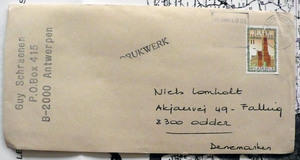 Guy Schraenen
P.O.Box 415
B-2000 Antwerpen
DRUKWERK
Niels Lomholt
Akjaervej 49 - Falling
8300 odder
Denemarken